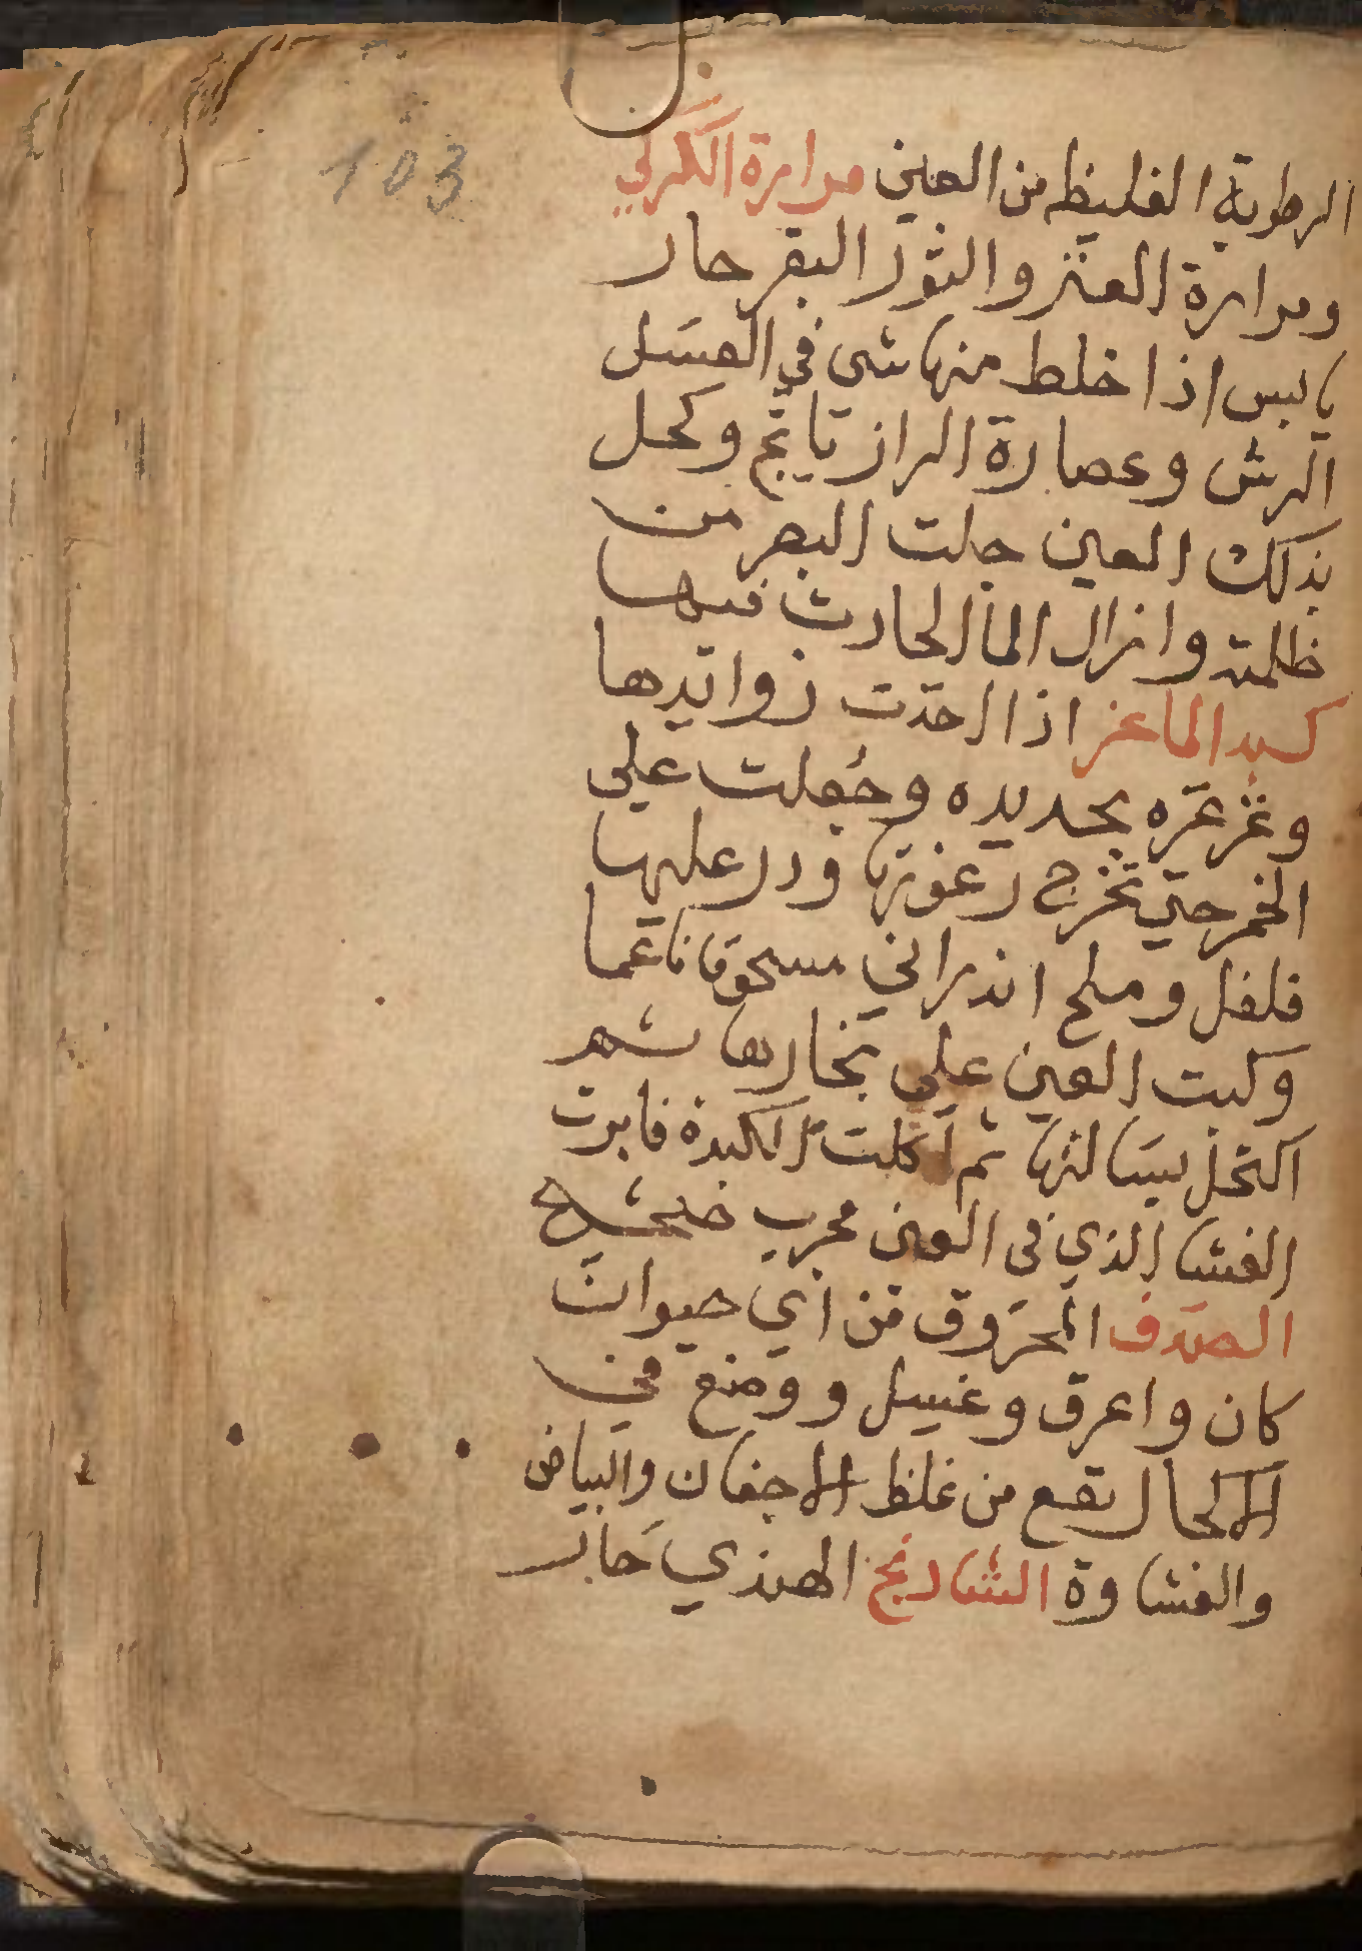 103
الرطوبة الغليظه من العين مرارة الكركي
ومرارة العنز والثور البقر حار
يابس اذا خلط منها شي في العسل
الرش وعصارة الرازيانج وكحل
بذلك العين جلت البصر من
ظلمته وانزال الما الحادث فيها
كبد الماعز اذا اخدت زوايدها
وغرغره بحديده وجعلت علي
الخمر حتي تخرج رغوتها ودر عليها
فلفل وملح اندراني مسحوقا ناعما
وكبت العين علي بخارها شهر
اكتحل بسالتها ثم اكلت الكبده فابرت
الغشا الذي في العين مجرب صحيح
الصدف المحروق من اي حيوان
كان واعرق وغسل ووضع في
الاكحال نفع من غلظ الاجفان والبياض
والغشاوة الشادنج الهندي حار